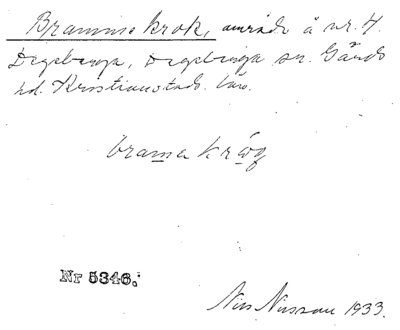 Bramme krok, område å nr. 4.
Degeberga, Degeberga sn. Gärds
hd. Kristianstads län.
brama kråg
Nr 5346.
Nils Nilsson 1933.